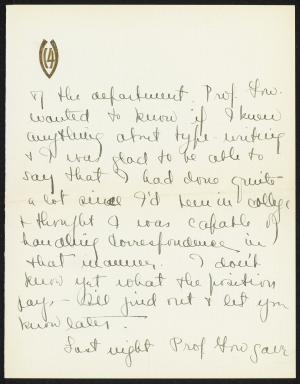 14
of the department. Prof. Gow.
wanted to know if I knew
anything about type-writing
& I was glad to be able to
say that I had done quite
a lot since I'd been in college
& thought I was capable of
handling correspondence in
that manner. I don't
know yet what the position
pays - will find out & let you
know later.
Last night Prof Gow gave